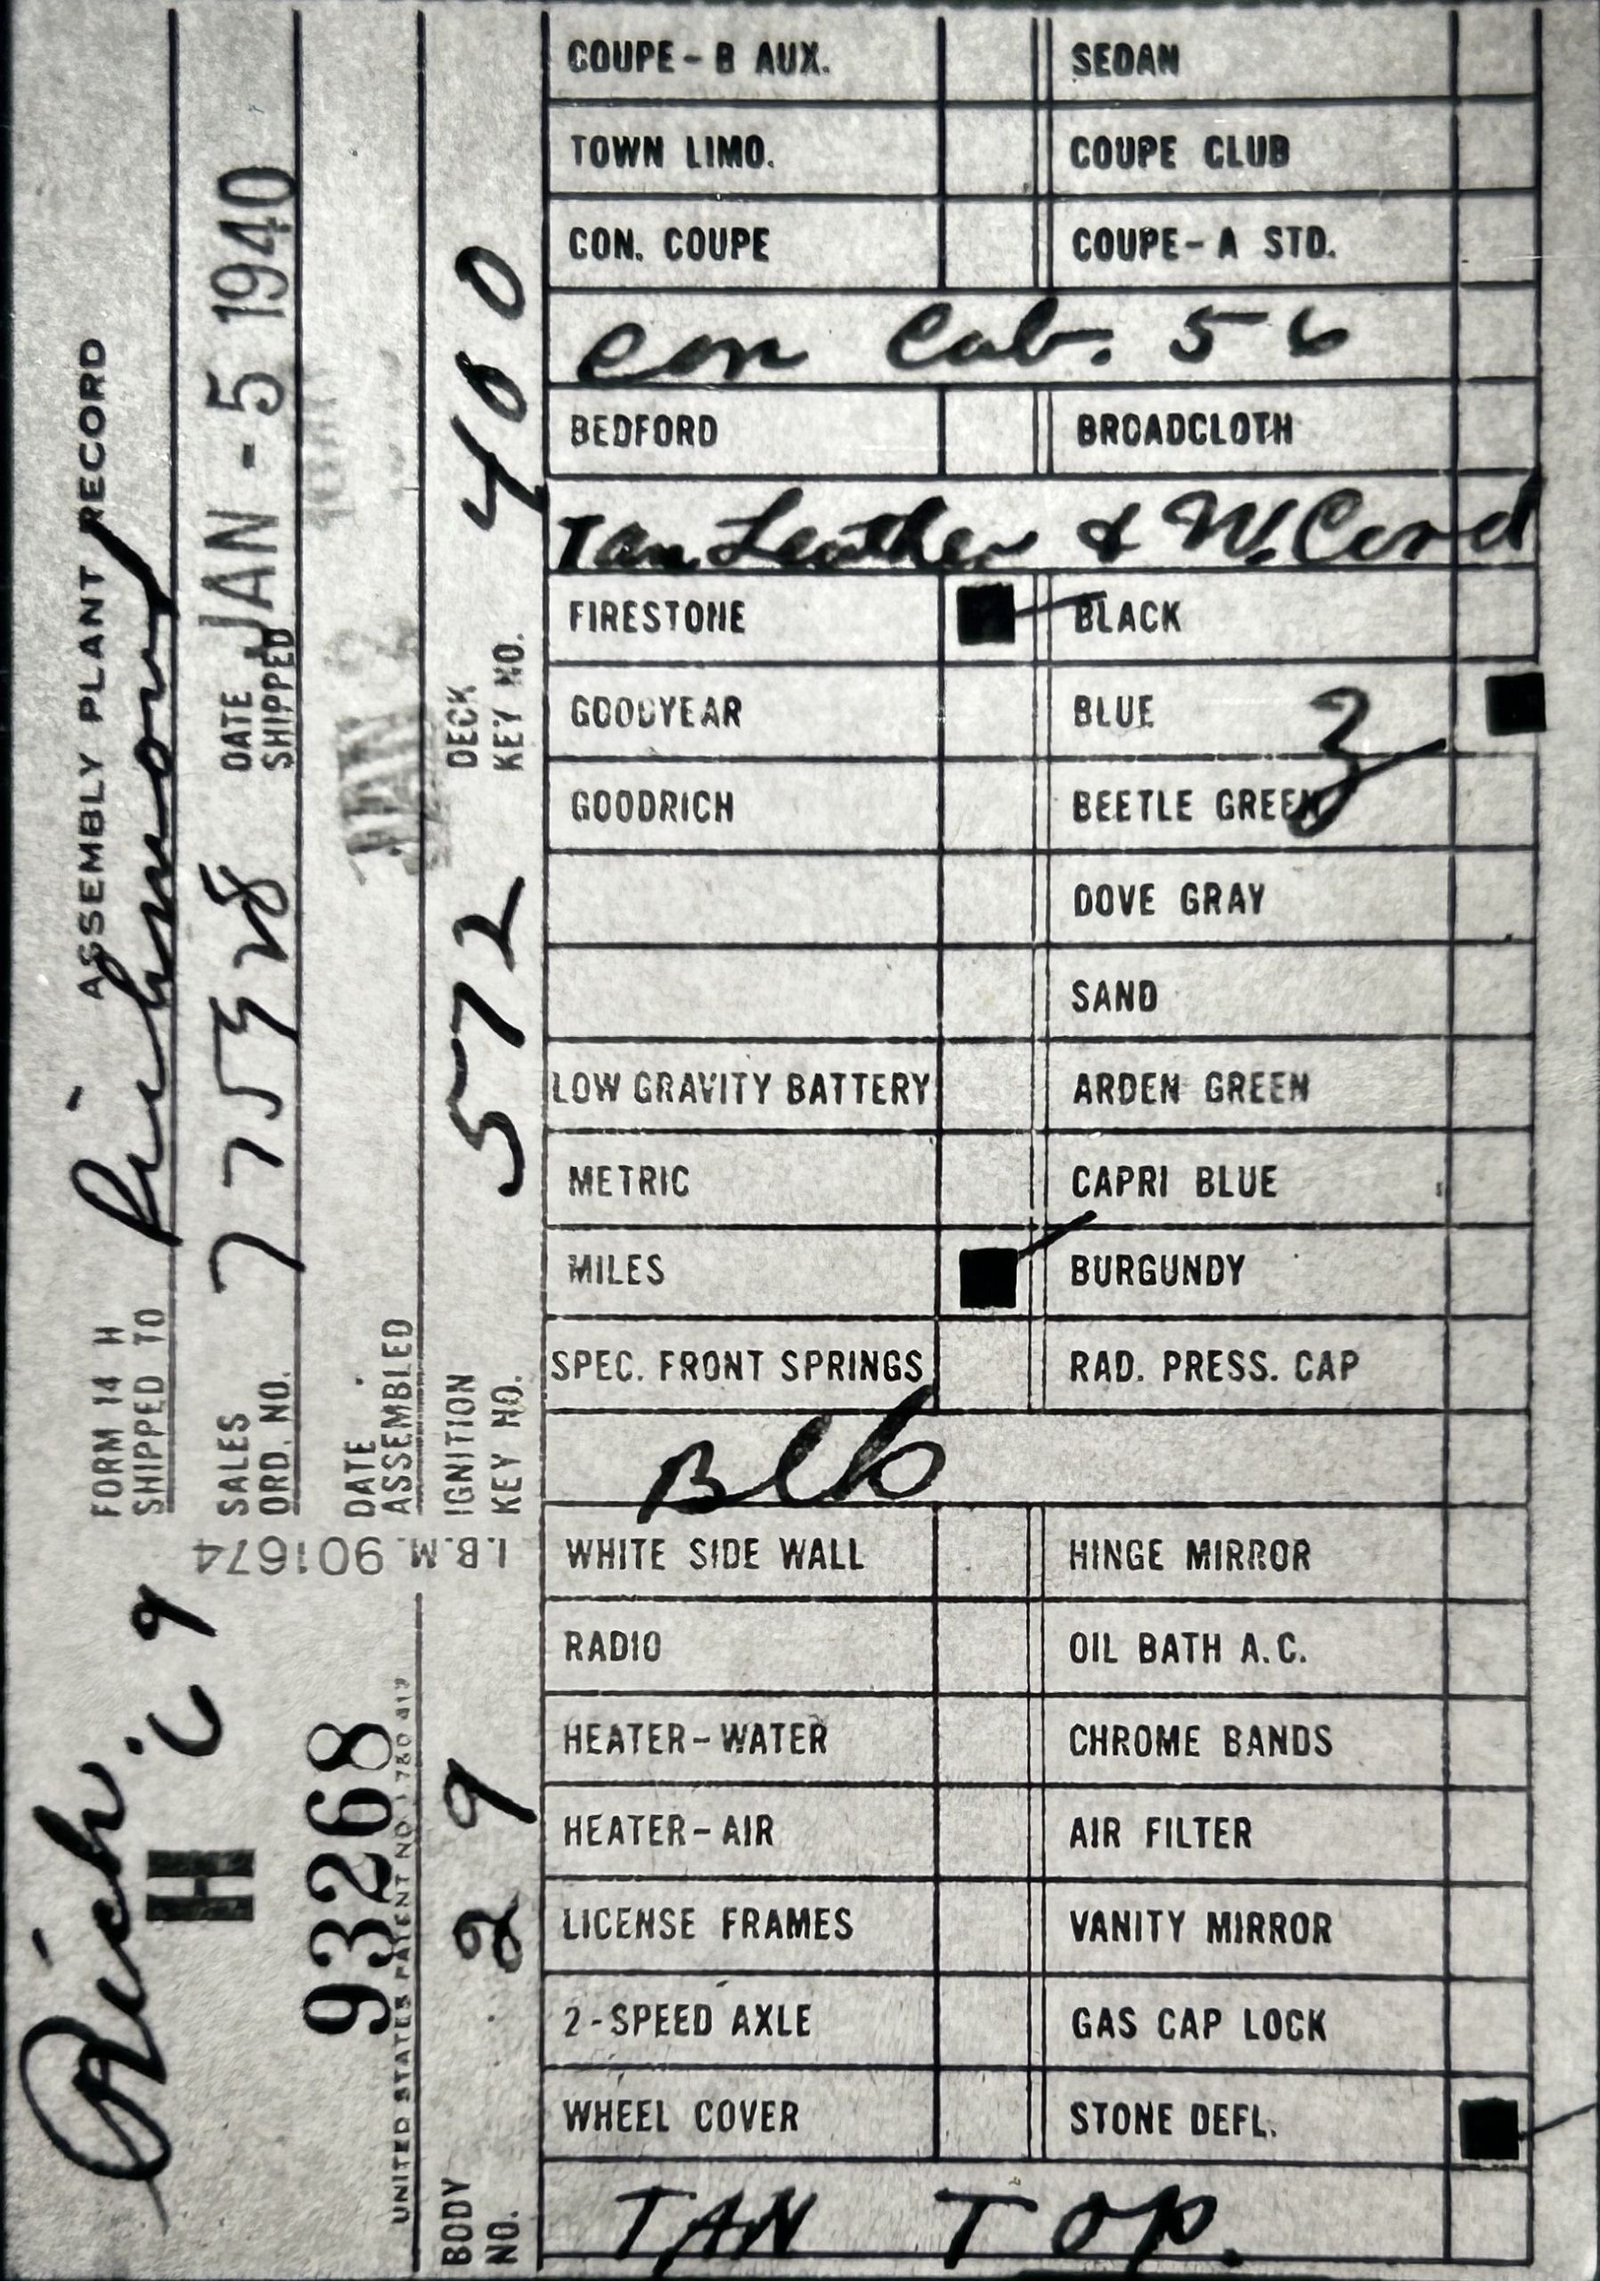 ASSEMBLY PLANT RECORD
FORM 14 H
SHIPPED TO Richmond
SALES ORD. NO. 77598 DATE SHIPPED JAN - 5 1940
DATE ASSEMBLED JAN 2
IGNITION KEY NO. 572 DECK KEY NO. 400
I.B.M. 901674
Rich. C 9
H
93268
UNITED STATES PATENT NO. 1 780 417
BODY NO. 29
COUPE - B AUX. SEDAN
TOWN LIMO. COUPE CLUB
CON. COUPE COUPE - A STD.
Con Cab. 56
BEDFORD BROADCLOTH
Tan Leather & W. Cord
FIRESTONE BLACK
GOODYEAR BLUE 3
GOODRICH BEETLE GREEN
DOVE GRAY
SAND
LOW GRAVITY BATTERY ARDEN GREEN
METRIC CAPRI BLUE
MILES BURGUNDY
SPEC. FRONT SPRINGS RAD. PRESS. CAP
Blk
WHITE SIDE WALL HINGE MIRROR
RADIO OIL BATH A.C.
HEATER - WATER CHROME BANDS
HEATER - AIR AIR FILTER
LICENSE FRAMES VANITY MIRROR
2 - SPEED AXLE GAS CAP LOCK
WHEEL COVER STONE DEFL.
TAN TOP.